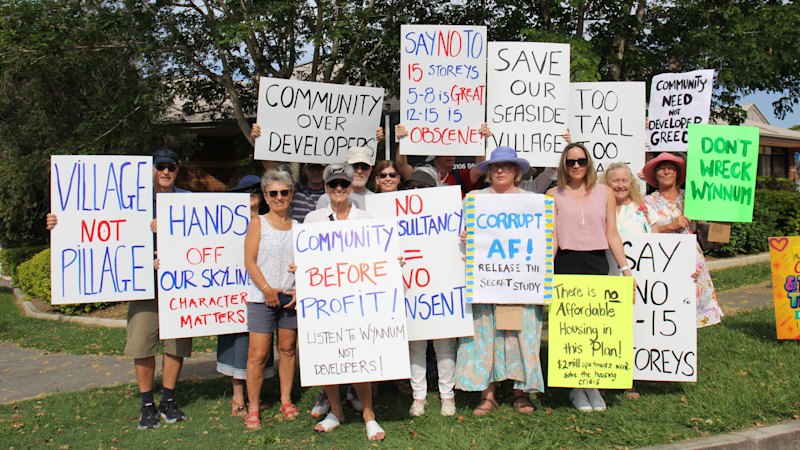 VILLAGE
NOT
PILLAGE
HANDS
OFF
OUR SKYLINE
CHARACTER
MATTERS
COMMUNITY
OVER
DEVELOPERS
COMMUNITY
BEFORE
PROFIT!
LISTEN TO WYNNUM
NOT
DEVELOPERS!
SAY NO TO
15 STOREYS
5-8 is GREAT
12-15 IS
OBSCENE!
NO
SULTANCY
=
NO
NSENT
SAVE
OUR
SEASIDE
VILLAGE
CORRUPT
AF!
RELEASE THE
SECRET STUDY
TOO
TALL
TOO
There is no
Affordable
Housing in
this Plan!
$2mill apartments wont
solve the housing
crisis
COMMUNITY
NEED
NOT
DEVELOPER
GREED
SAY
NO TO
-15
STOREYS
DON'T
WRECK
WYNNUM